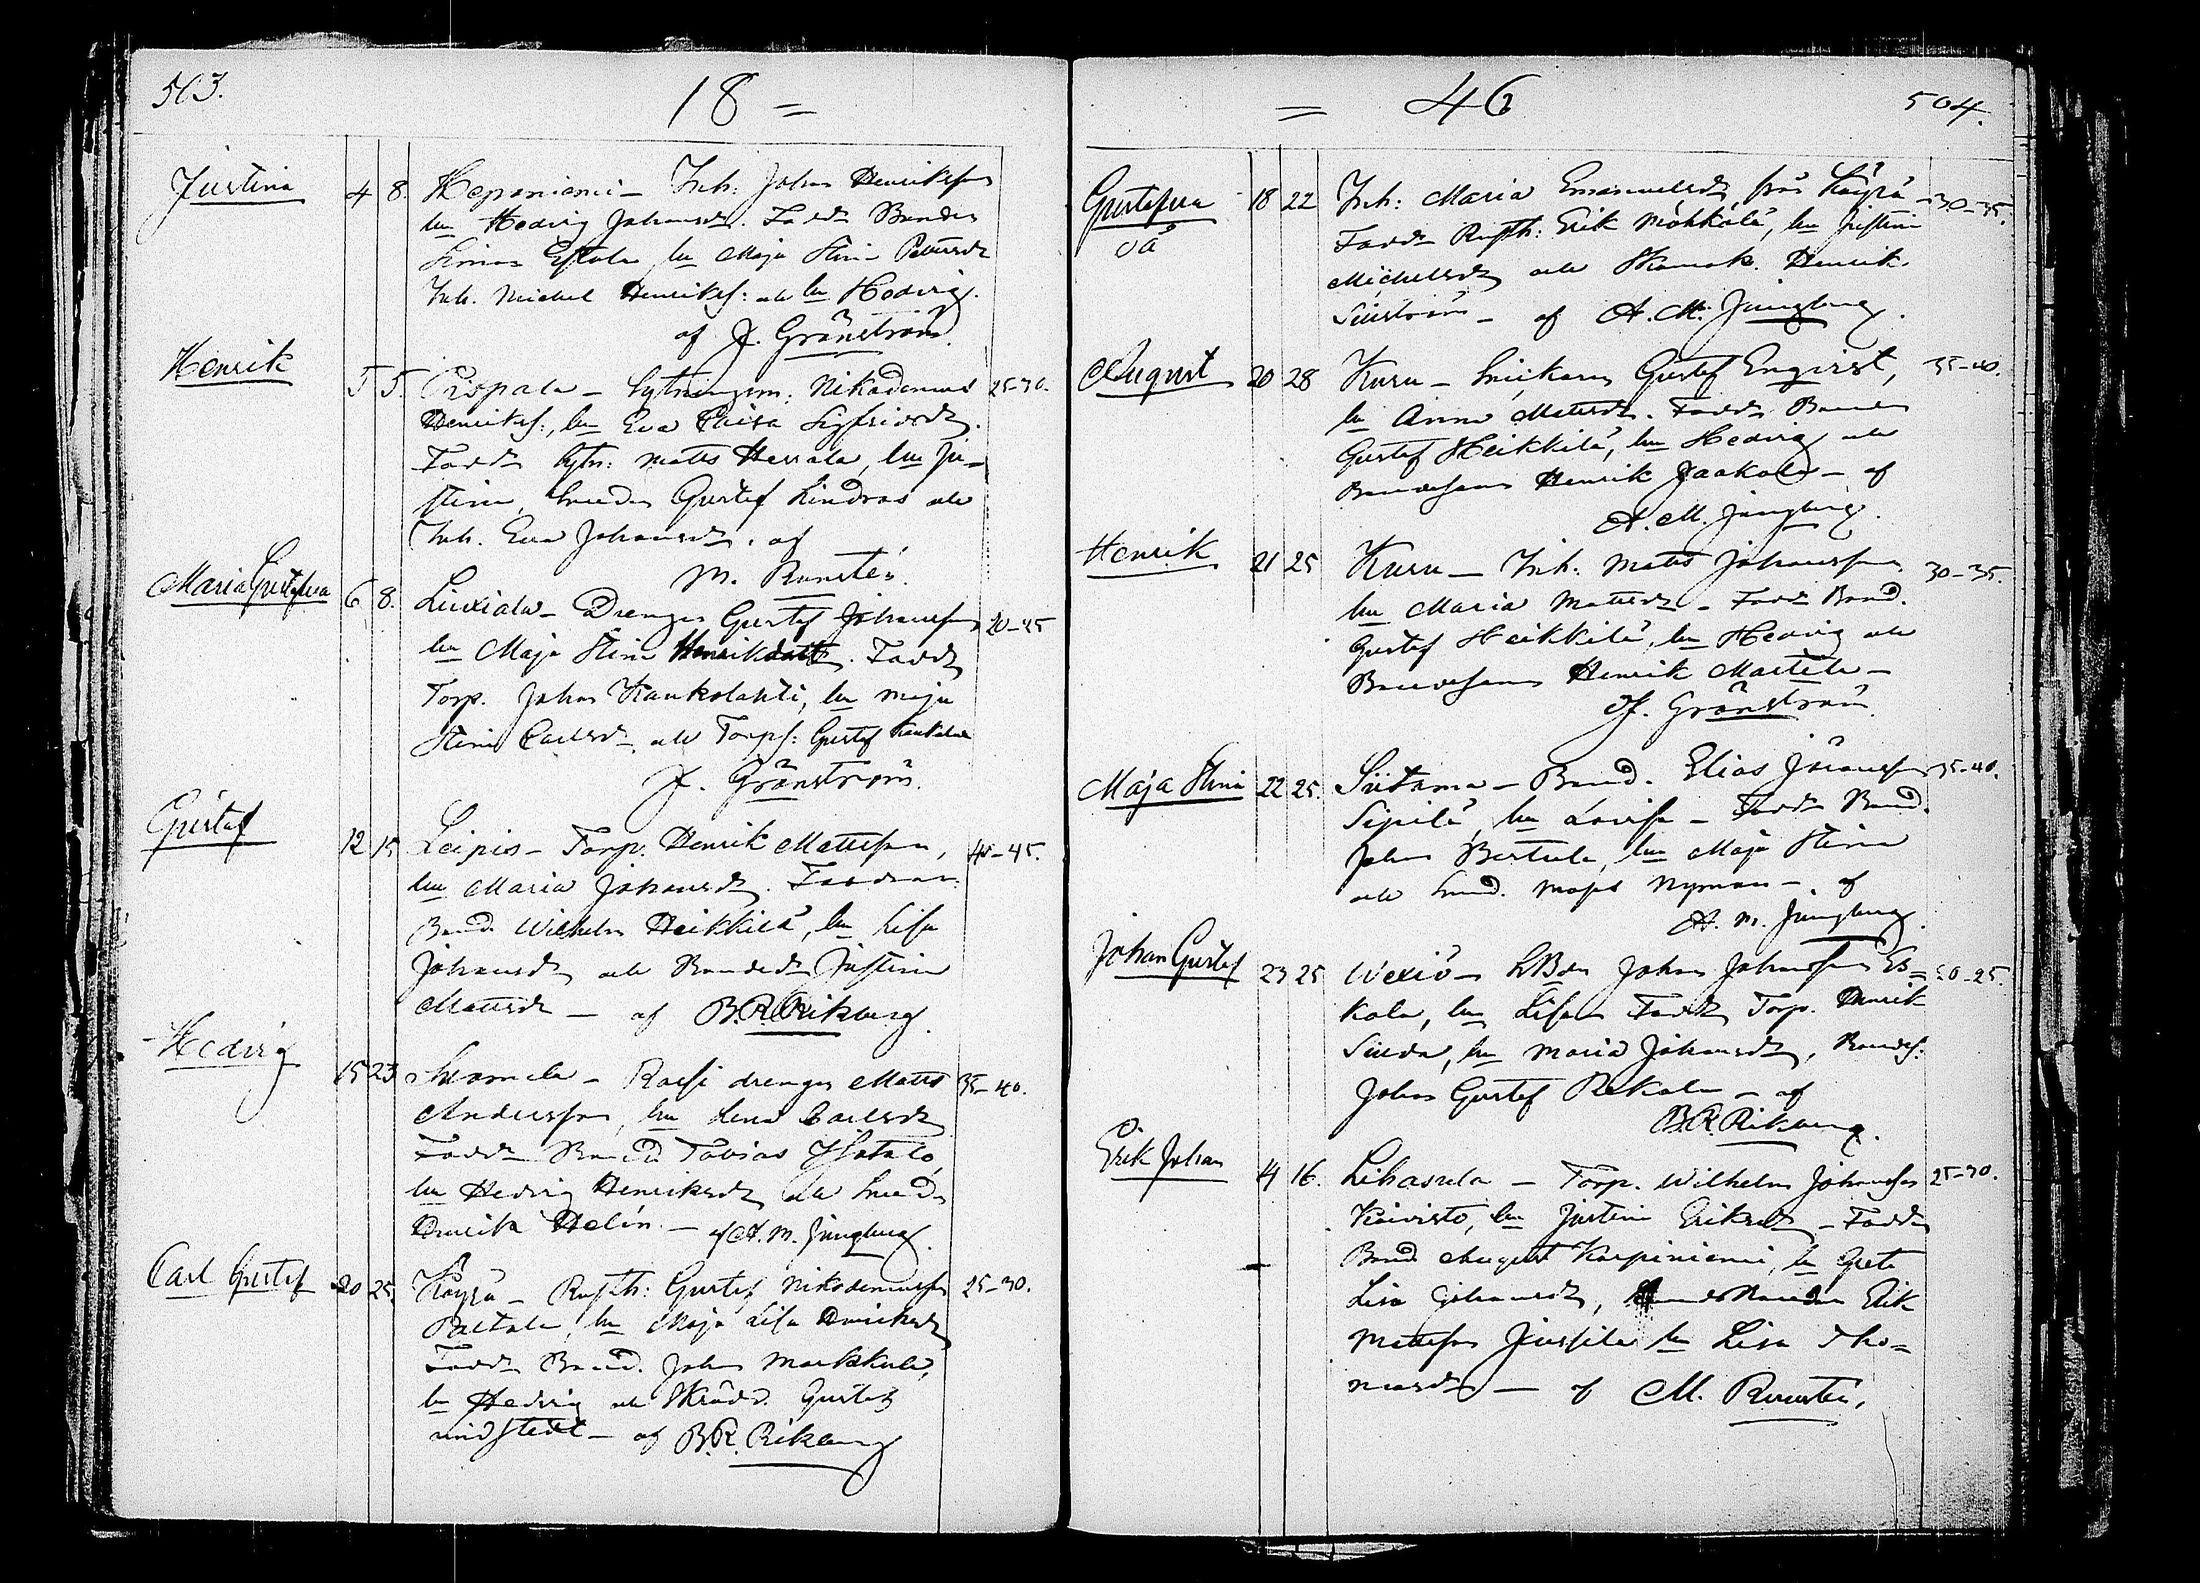 503. 18 =
Justina 4 8. Heponiemi - Inh: Johan Henriksson
hu Hedvig Johansdr. Faddr Bonden
Simon Eskola, hu Maja Stina
Inh. Michel Henrikss: och hu Hedvig.
af J. Grönström.
Henrik 5 5. Pispala - Sytningsm: Nikodemus 25-30.
Henrikss:, hu Eva Caisa Sigfridsdr.
Faddr Sytn: Matts Heikkilä, hu Ju-
stina, Smeden Gustaf Lindroos och
Inh. Eva Johansdr. af
M. Runstén.
Maria Gustafva 6 8. Liuxiala - Drengen Gustaf Johansson 20-25
hu Maja Stina Henriksdotr. Faddr
Torp. Johan Kaukolahti, hu Maja
Stina Carlsdr och Torps: Gustaf
J. Grönström.
Gustaf 12 15 Leipis - Torp. Henrik Mattsson, 40-45.
hu Maria Johansdr. Faddrar
Bond. Wilhelm Heikkilä, hu Lisa
Johansdr och Bondedr Justina
Mattsdr - af B.R. Rikberg.
Hedvig 15 23 Suomela - Rothe drengen Matts 35-40.
Andersson, hu Lena Carlsdr
Faddr Bonden Tobias Isotalo,
hu Hedvig Henriksdr och Smeden
Henrik Helin - af A. M. Jungberg.
Carl Gustaf 20 25. Käyrä - Rusth: Gustaf Nikodemusson 25-30.
Paltala, hu Maja Lisa Henriksdr
Faddr Bond. Johan Markkula,
hu Hedvig och Skrädd. Gustaf
Widstedt - af B.R. Rikberg
= 46 504.
Gustafva 18 22 Inh: Maria Emanuelsdr, från Käyrä 30-35.
oä Faddr Rusth: Erik Möhkälä, hu Justina
Michelsdr och Skomak. Henrik
Siuström - af A. M. Jungberg.
August 20 28 Kuru - Snickaren Gustaf Enqvist, 35-40.
hu Anna Mattsdr. Faddr Bonden
Gustaf Heikkilä, hu Hedvig och
Bondesonen Henrik Jaakola - af
A. M. Jungberg.
Henrik 21 25 Kuru - Inh: Matts Johansson 30-35.
hu Maria Mattsdr - Faddr Bond.
Gustaf Heikkilä, hu Hedvig och
Bondesonen Henrik Marttila -
J. Grönström
Maja Stina 22 25. Siitama - Bond. Elias Johansson 35-40.
Sipilä, hu Lovisa - Faddr Bond.
Johan Berttula, hu Maja Stina
och Smed. Moses Nyman - af
A. M. Jungberg.
Johan Gustaf 23 25 Wexiö - LBden Johan Johansson Es= 20-25.
kola, hu Lisa Faddr Torp. Henrik
hu Maria Johansdr, Bondes:
Johan Gustaf Pekkala - af
B.R. Rikberg.
Erik Johan 14 16. Lihasula - Torp. Wilhelm Johansson 25-30.
Koivisto, hu Justina Eriksdr - Faddr
Bond August Karpiniemi, hu Greta
Lisa Johansdr, Bonden Erik
Mattsson Jussila hu Lisa Tho=
masdr - af M. Runstén.